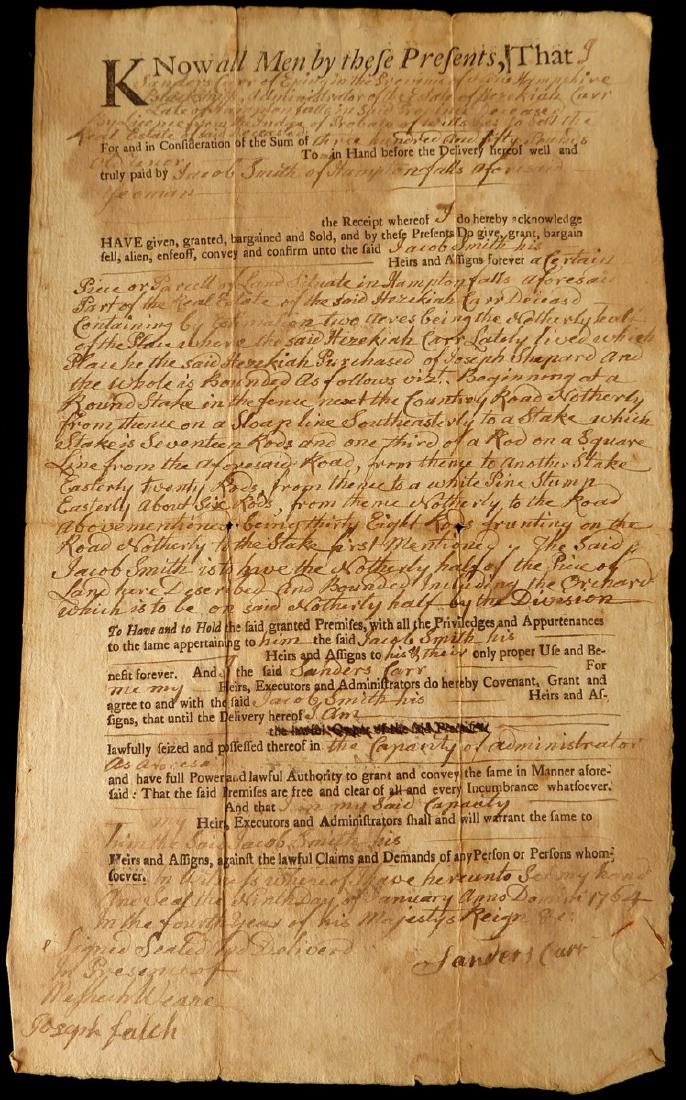 KNow all Men by these Presents, That I
Sanders Carr of Epping in the Province of New Hampshire
Administrator of the Estate of Hezekiah Carr
Late of Hampton falls in Said Province Deceased
By a Licence from the Judge of Probate of Wills &c to Sell the
Real Estate of said deceased
For and in Consideration of the Sum of three hundred and fifty Pounds
old Tenor To in Hand before the Delivery hereof well and
truly paid by Jacob Smith of Hampton falls aforesaid
Yeoman
the Receipt whereof I do hereby acknowledge
HAVE given, granted, bargained and Sold, and by these Presents Do give, grant, bargain
sell, alien, enfeoff, convey and confirm unto the said Jacob Smith his
Heirs and Assigns forever a Certain
Piece or Parcell of Land Situate in Hampton falls aforesaid
Part of the Real Estate of the Said Hezekiah Carr Deceasd
Containing by Estimation two acres being the Notherly half
of the Place where the said Hezekiah Carr Lately lived which
Place he the said Hezekiah Purchased of Joseph Shepard And
the whole is Bounded As follows vizt. Beginning at a
Round Stake in the fence next the Country Road Notherly
from thence on a Sloap line Southeasterly to a Stake which
Stake is Seventeen Rods and one third of a Rod on a Square
Line from the aforesaid Road, from thence to Another Stake
Easterly twenty Rods, from thence to a white Pine Stump
Easterly About Six Rods, from thence Notherly to the Road
abovementioned being thirty Eight Rods frunting on the
Road Notherly to the Stake first Mentioned, The Said
Jacob Smith is to have the Notherly half of the Piece of
Land here Described And Bounded Including the Orchard
which is to be on said Notherly half by the Division
To Have and to Hold the said granted Premises, with all the Priviledges and Appurtenances
to the same appertaining to him the said Jacob Smith his
Heirs and Assigns to his & their only proper Use and Be-
nefit forever. And I the said Sanders Carr For
me my Heirs, Executors and Administrators do hereby Covenant, Grant and
agree to and with the said Jacob Smith his Heirs and As-
signs, that until the Delivery hereof I am
lawfully seized and possessed thereof in the Capacity of administrator
As aforesaid
and have full Power and lawful Authority to grant and convey the same in Manner afore-
said: That the said Premises are free and clear of all and every Incumbrance whatsoever.
And that I in my Said Capacity
my Heirs, Executors and Administrators shall and will warrant the same to
him the Said Jacob Smith his
Heirs and Assigns, against the lawful Claims and Demands of any Person or Persons whom-
soever. In Witness whereof I have hereunto Set my hand
and Seal the Ninth Day of January Anno Domini 1764
In the fourth Year of his Majestys Reign &c
Signed Sealed and Deliverd
In Presence of
Sanders Carr
Meshech Weare
Joseph